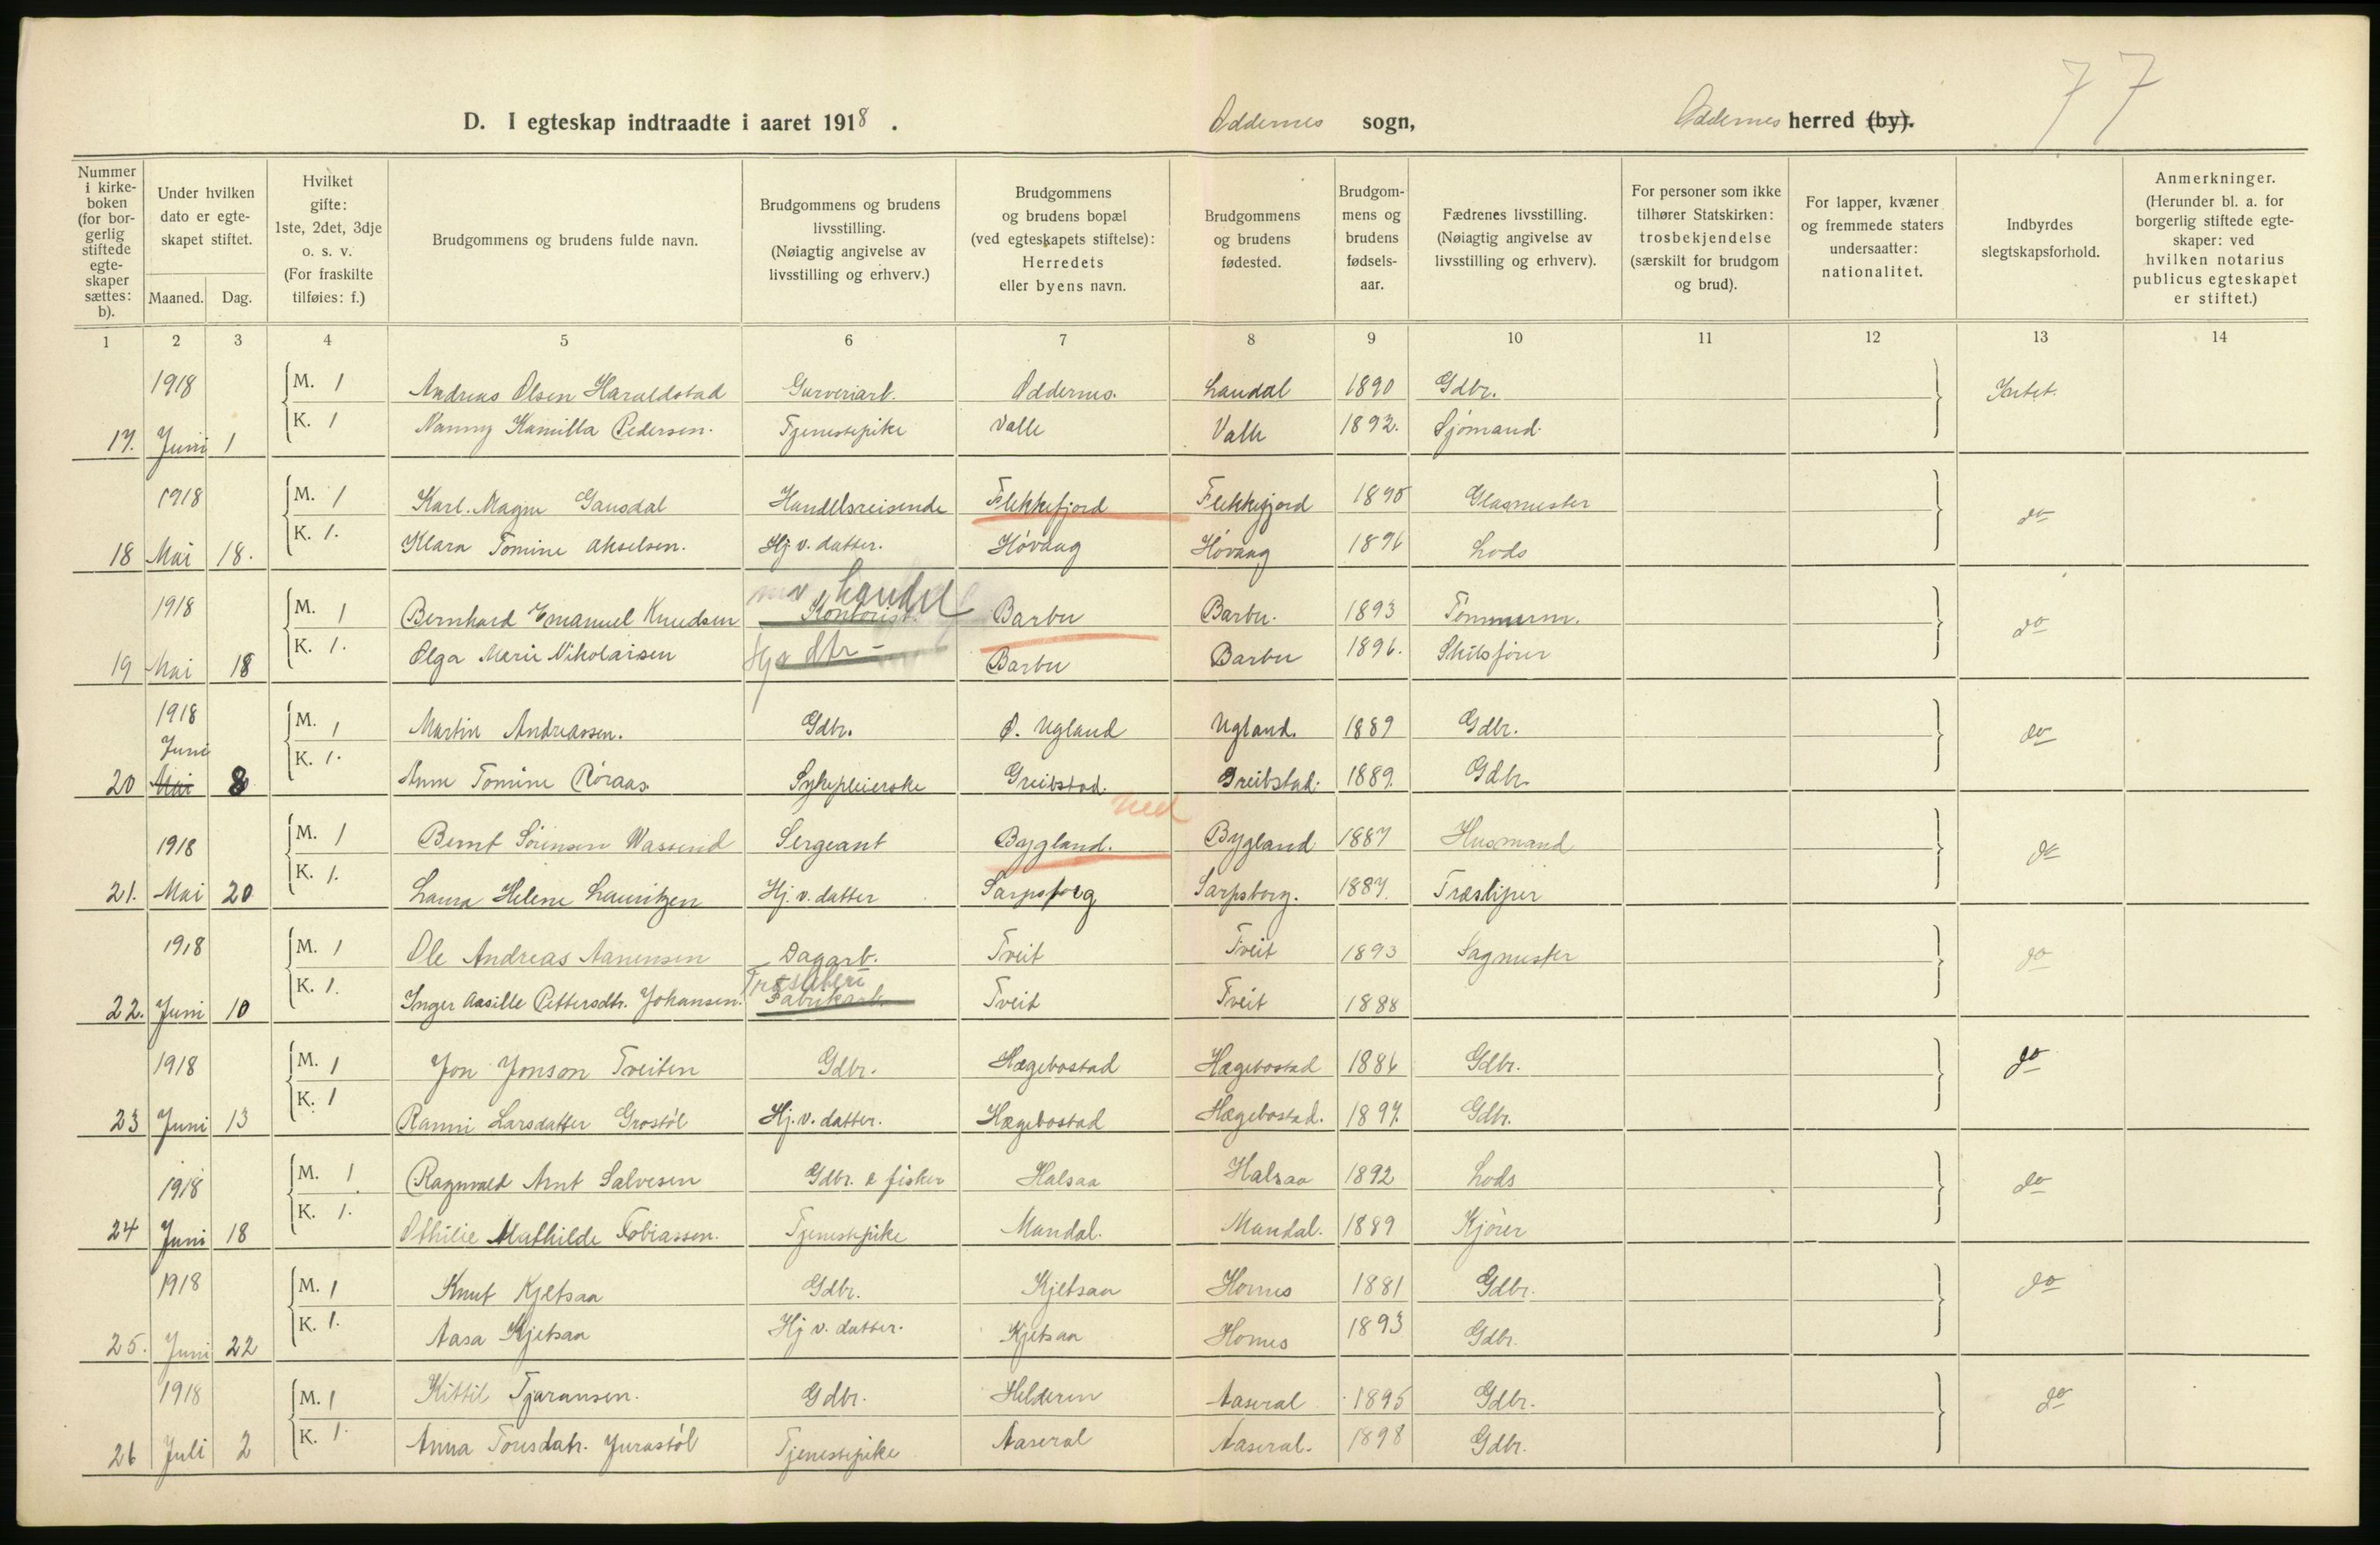 77
D. I egteskap indtraadte i aaret 1918 . Oddernes sogn, Oddernes herred (by).
Nummer i kirke-boken (for bor-gerlig stiftede egte-skaper sættes: b).
Under hvilken dato er egte-skapet stiftet.
Maaned. Dag.
Hvilket gifte: 1ste, 2det, 3dje o. s. v. (For fraskilte tilføies: f.)
Brudgommens og brudens fulde navn.
Brudgommens og brudens livsstilling. (Nøiagtig angivelse av livsstilling og erhverv.)
Brudgommens og brudens bopæl (ved egteskapets stiftelse): Herredets eller byens navn.
Brudgommens og brudens fødested.
Brudgom-mens og brudens fødsels-aar.
Fædrenes livsstilling. (Nøiagtig angivelse av livsstilling og erhverv).
For personer som ikke tilhører Statskirken: trosbekjendelse (særskilt for brudgom og brud).
For lapper, kvæner og fremmede staters undersaatter: nationalitet.
Indbyrdes slegtskapsforhold.
Anmerkninger. (Herunder bl. a. for borgerlig stiftede egte-skaper: ved hvilken notarius publicus egteskapet er stiftet.)
1 2 3 4 5 6 7 8 9 10 11 12 13 14
1918 M. 1 Andreas Olsen Haraldstad Garveriarb. Oddernes. Laudal 1890 Gdbr. Intet.
17. Juni 1 K. 1 Nanny Kamilla Pedersen. Tjenestepike Valle Valle 1892. Sjömand.
1918 M. 1 Karl. Magne Gausdal Handelsreisende Flekkefjord Flekkefjord 1890 Glasmester do
18 Mai 18. K. 1. Klara Tomine Akselsen. Hj. v. datter. Høvaag Høvaag 1896 Lods
handel
1918 M. 1 Bernhard Emanuel Knudsen Kontorist. Barbu Barbu. 1893 Tømmerm. do
19 Mai 18 K. 1. Olga Marie Nikolaisen Hj v dtr - Barbu Barbu 1896. Skibsfører
1918 M. 1 Martin Andreassen. Gdbr. Ø. Ugland Ugland. 1889 Gdbr. do
Juni
20 Mai 8 K. 1. Anne Tomine Røraas. Sykepleierske Greibstad. Greibstad. 1889. Gdbr.
ned
1918 M. 1 Bernt Sørensen Wassend Sergeant Bygland. Bygland 1887 Husmand do
21. Mai 20 K. 1. Laura Helene Lauritzen Hj. v. datter Sarpsborg Sarpsborg. 1887. Træsliper
1918 M. 1 Ole Andreas Aanensen Dagarb. Tveit Tveit 1893 Sagmester do
Træsliberi
22. Juni 10 K. 1. Inger Aasille Pettersdtr. Johansen. Fabrikarb. Tveit Tveit 1888
1918 M. 1 Jon Jonson Tveiten Gdbr. Hægebostad Hægebostad 1886 Gdbr. do
23 Juni 13 K. 1 Ranni Larsdatter Grostøl Hj. v. datter. Hægebostad Hægebostad. 1897. Gdbr.
1918 M. 1. Ragnvald Arnt Salvesen Gdbr. & fisker Halsaa Halsaa 1892 Lods do
24 Juni 18 K. 1. Othilie Mathilde Tobiassen. Tjenestepike Mandal. Mandal. 1889 Kjører
1918 M. 1 Knut Kjetsaa Gdbr. Kjetsaa Hornes 1881 Gdbr. do
25. Juni 22 K. 1. Aasa Kjetsaa Hj v. datter. Kjetsaa Hornes 1893 Gdbr.
1918 M. 1 Kittil Tjaransen. Gdbr. Helderen Aaseral 1895 Gdbr. do
26 Juli 2 K. 1. Anna Torisdatr. Jurastøl Tjenestepike Aaseral Aaseral. 1898 Gdbr.